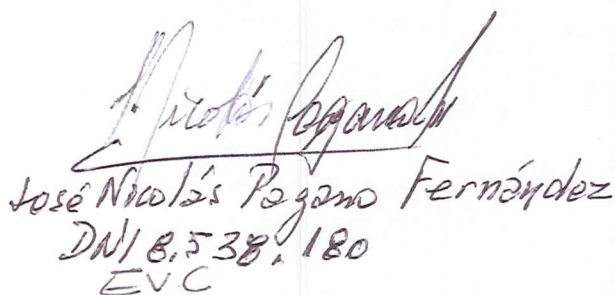 Nicolás Pagano
José Nicolás Pagano Fernández
DNI 8.538.180
EVC